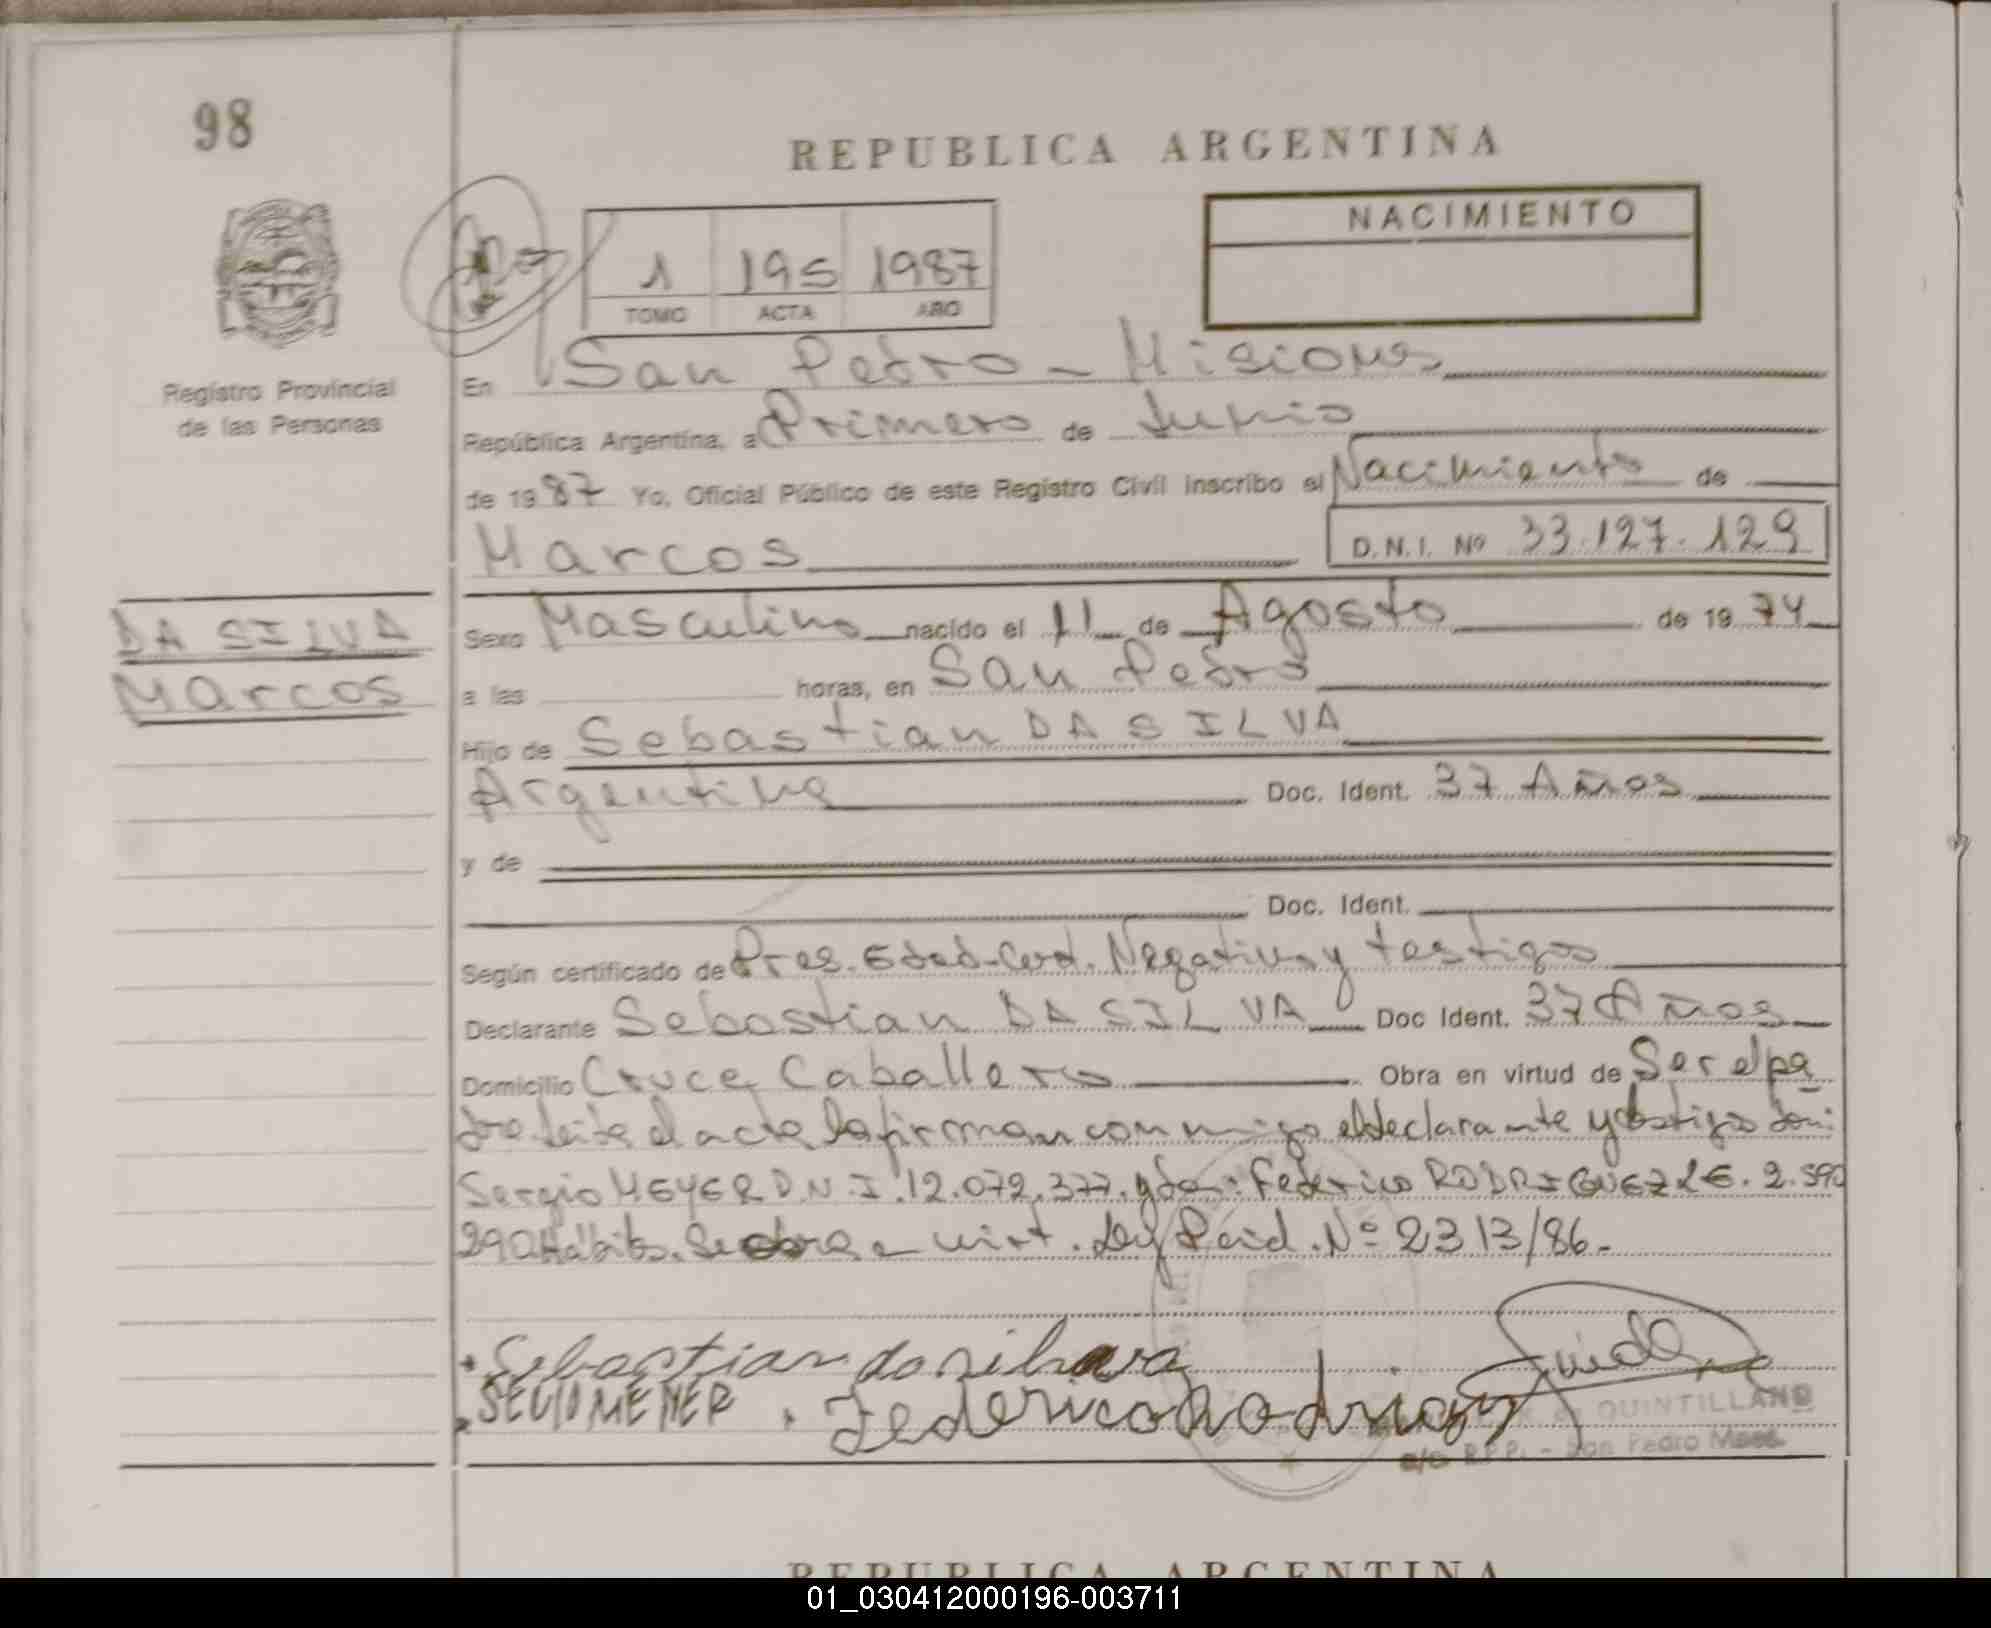 98
REPUBLICA ARGENTINA
NACIMIENTO
1 195 1987
TOMO ACTA AÑO
Registro Provincial
de las Personas
En San Pedro - Misiones
República Argentina, a Primero de Junio
de 1987 Yo, Oficial Público de este Registro Civil inscribo el Nacimiento de
Marcos D.N.I. Nº 33.127.129
DA SILVA
Marcos
Sexo Masculino nacido el 11 de Agosto de 1974
a las horas, en San Pedro
Hijo de Sebastian DA SILVA
Argentina Doc. Ident. 37 Años
y de
Doc. Ident.
Según certificado de Pres. Edad-Cert. Negativo y testigos
Declarante Sebastian DA SILVA Doc Ident. 37 Años
Domicilio Cruce Caballero Obra en virtud de Ser el pa
dre leida el acta la firman conmigo el declarante y testigo don:
Sergio MEYER D.N.I. 12.079.377. y don: Federico RODRIGUEZ L.E. 2.590
290 Hábiles. Se obra en virt. Ley Pcial. Nº 2313/86.-
Sebastian da silva
SEGIOMEYER . Federico Rodrigez
QUINTILLANO
a/c R.P.P. - San Pedro Mnes.
REPUBLICA ARGENTINA
01_030412000196-003711